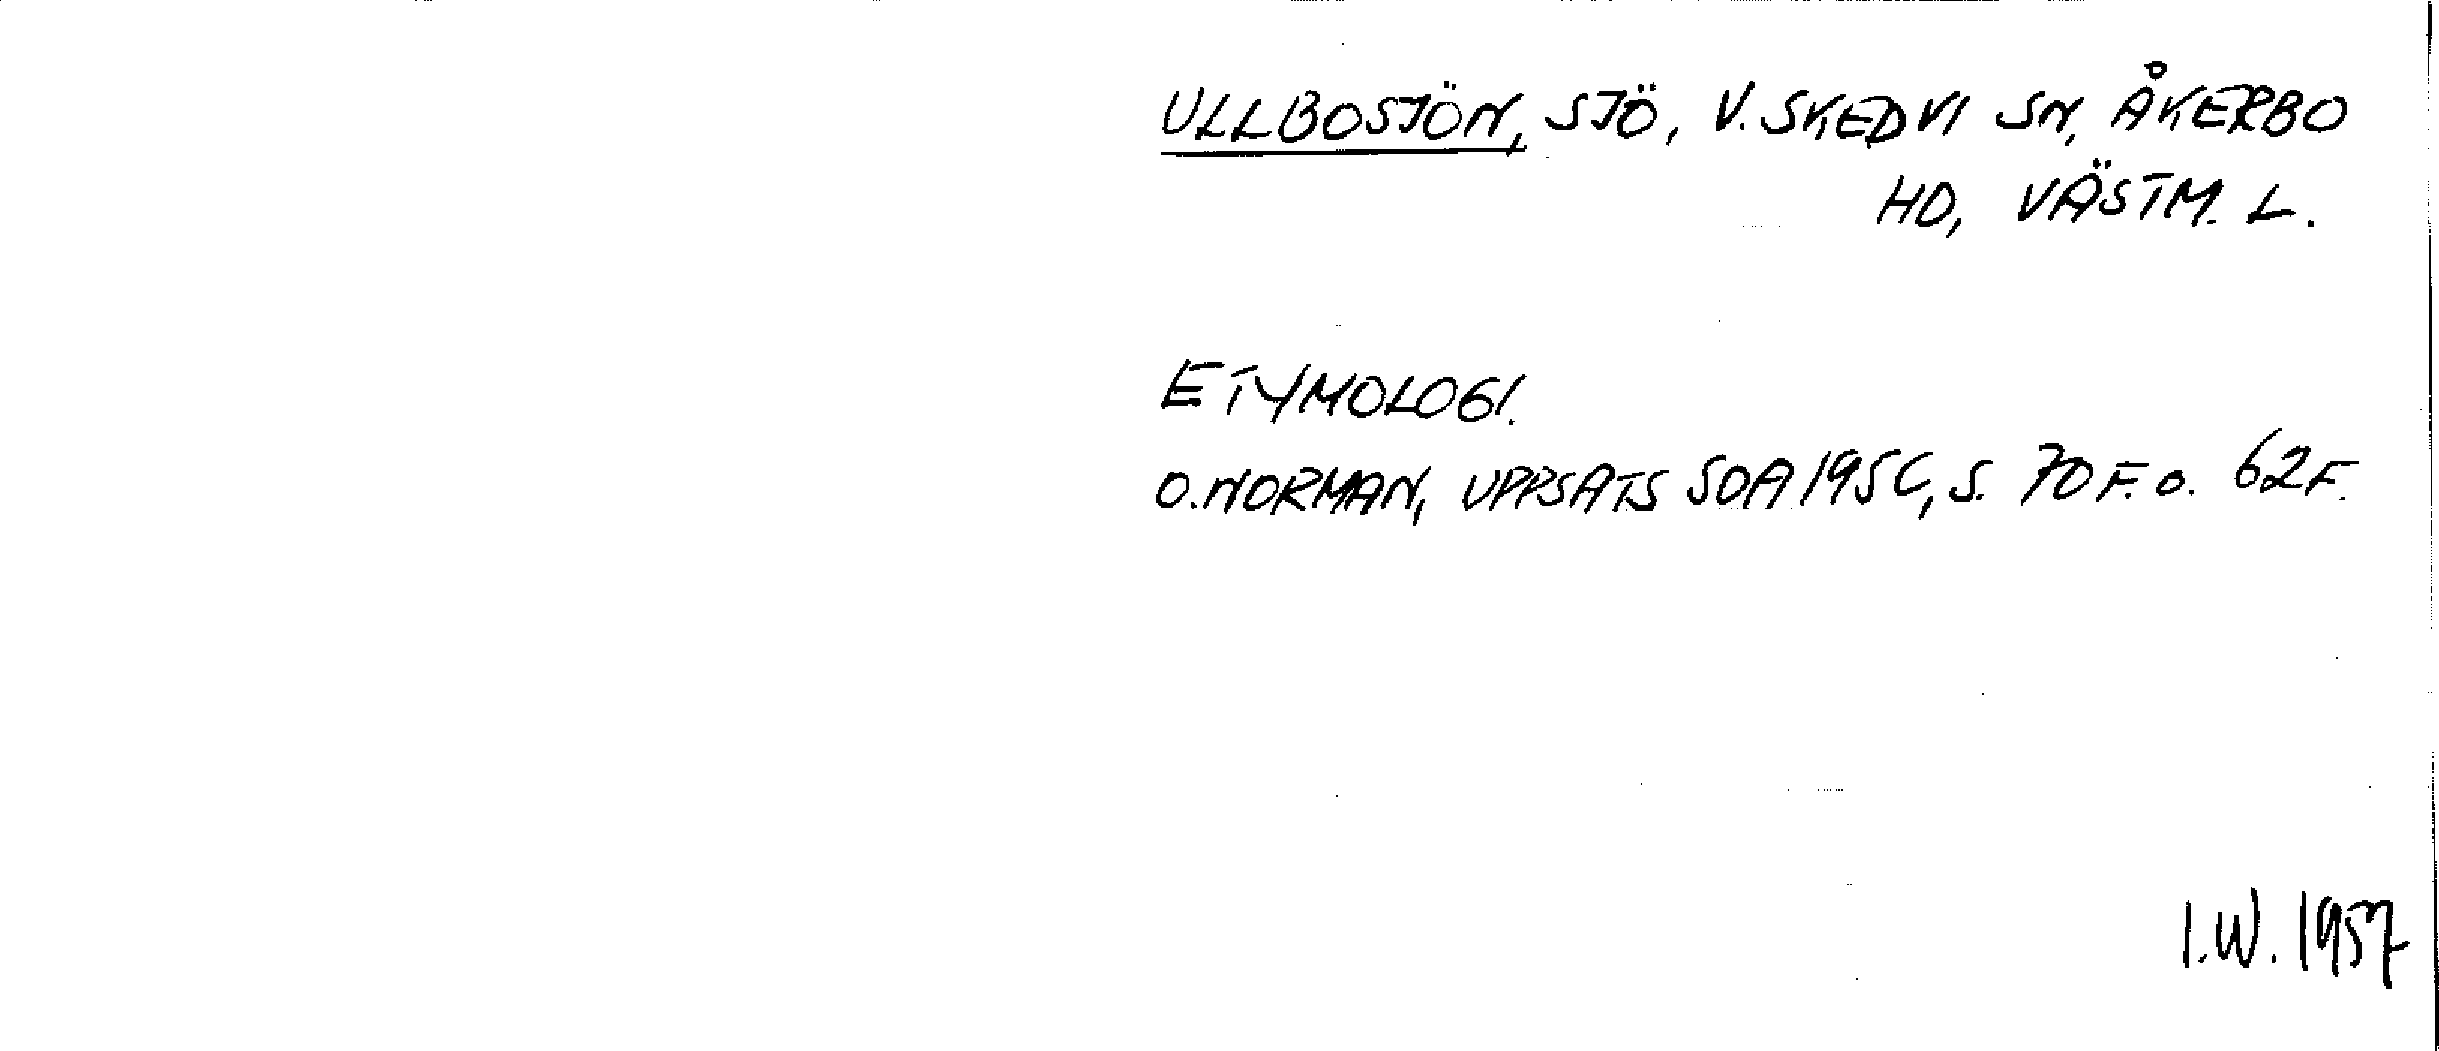 ULLBOSJÖN, SJÖ, V. SKEDVI SN, ÅKERBO
HD, VÄSTM. L.
ETYMOLOGI.
O. NORMAN, UPPSATS SOA 1956, S. 70 F. O. 62 F.
I.W. 1957